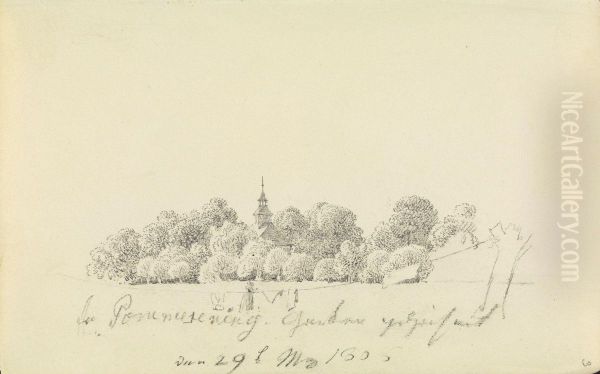 Pommerening. Garten gezeichnet
den 29t May 1806
3
NiceArtGallery.com